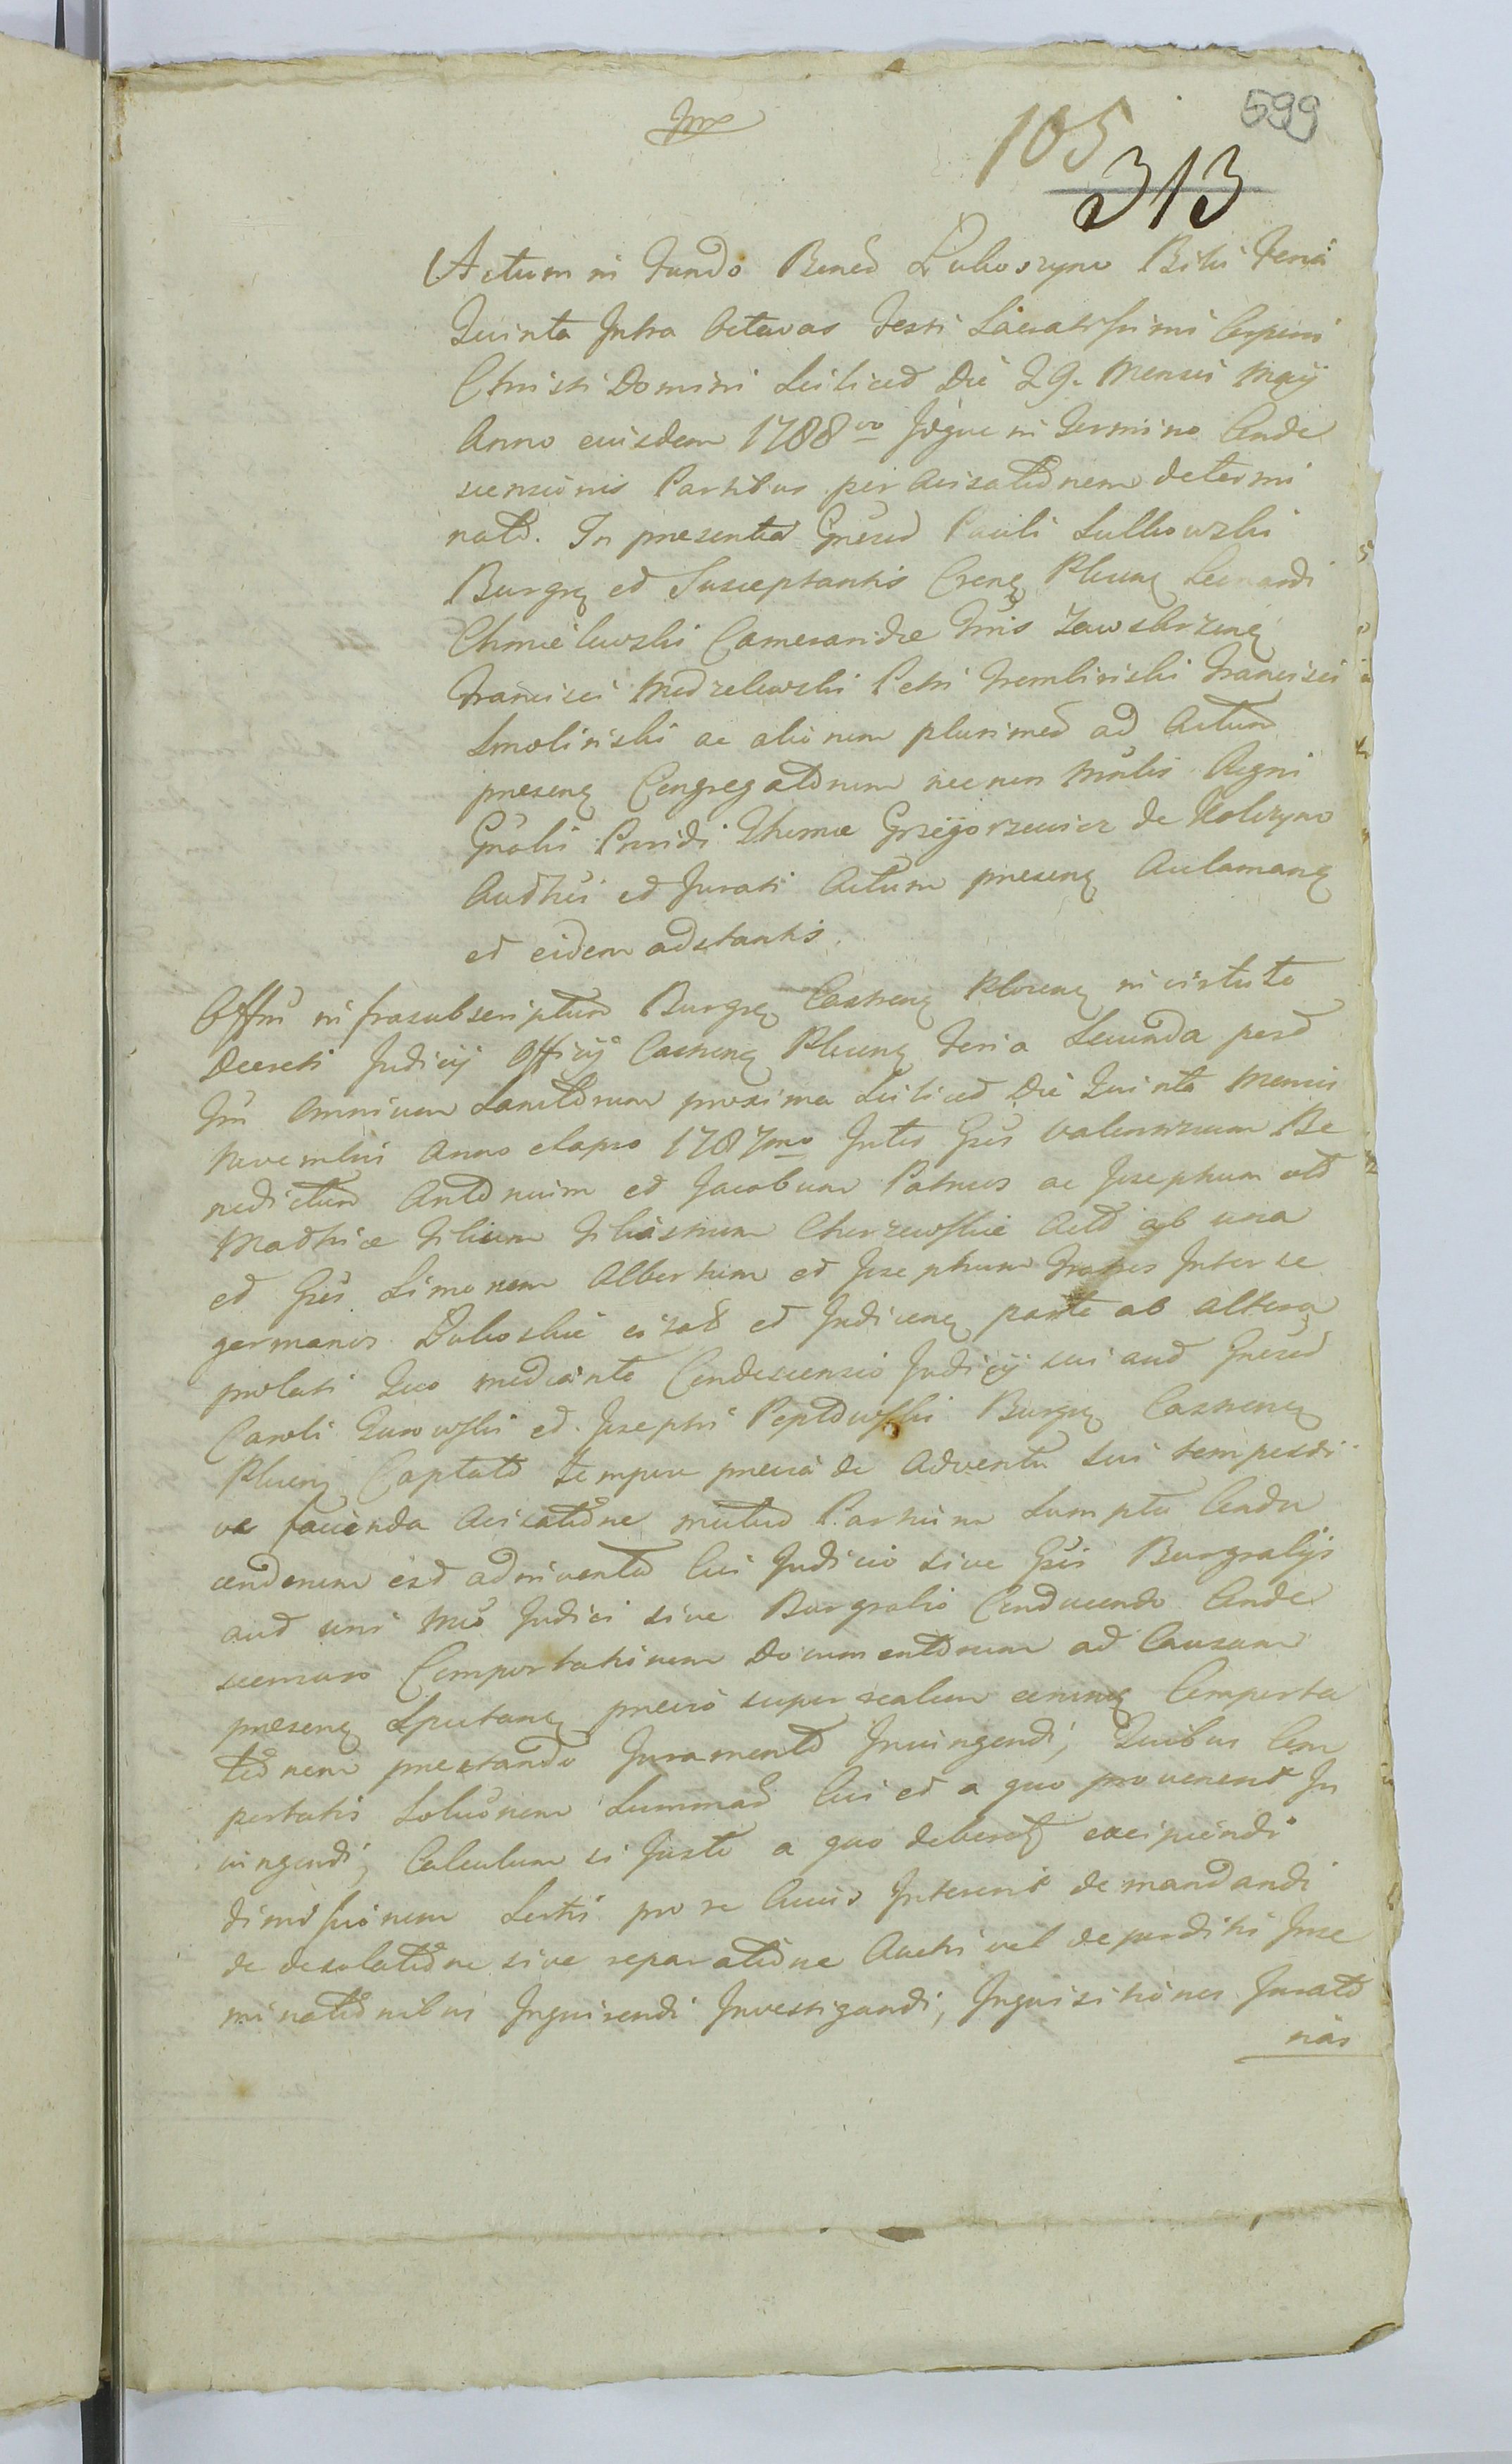 599
105
313
Actum in Fundo Bonoɋ Luboszyno Biki Feria
Quinta Intra Octavas Festi Sacratissimi Corporis
Christi Domini Scilicet Die 29. Mensis Maij
Anno eiusdem 1788vo Idque in Termino Conde
scensionis Partibus per Avisationem determi
nato. In presentia Gnesoɋ Pauli Sulkowski
Burgɋ et Susceptantis Crenɋ Plocenɋ Leonardi
Chmielewski Camerarii Tris Zawskrzenɋ
Francisci Modzelewski Petri Trembinski Francisci
Smolinski ac aliorum plurimoɋ ad Actum
presenɋ Congregatorum nec non Mnlis Regni
Gnalis Providi Thoma Grzegorzewicz de Kolczyno
Authci et Jurati Actum presenɋ Aclamanɋ
et eidem adstantis.
Offm infrascriptum Burgɋ Castrenɋ Plocenɋ in virtute
Decreti Judicij Officij Castrenɋ Plocenɋ Feria Secunda post
Fm Omnium Sanctorum proxima Scilicet Die Quinta Mensis
Novembris Anno elapso 1787mo Inter Gsos Valentinum Be
nedictum Antonium et Jacobum Patruos ac Josephum olim
Mathiæ Filium Filiastrum Chorzewskie Act ab una
et Gsos Simonem Albertum et Josephum Fratres Inter se
germanos Luboskie citat et Judicenɋ parte ab altera
prolati Quo mediante Condescensio Judicij sui aut Gnesoɋ
Caroli Gurowski et Josephi Peptowski Burgɋ Castrenɋ
Plocenɋ Captato tempore previa de Adventu sui tempesti
ve facienda Avisatione mutuo Partium Sumptu Condu
cendorum est adinventa Cui Judicio sive Gsis Burgrabijs
aut uni Mo Judici sive Burgrabio Conducendo Conde
scensuro Comportationem Documentorum ad Causam
presenɋ Spectanɋ previo super realem eorumɋ Comporta
tionem prestando Juramento Iniungendi, Quibus Com
portatis Solutionem Summaɋ Cui et a quo provenerit In
iungendi, Calculum si Juste a quo deberetɋ excipiendi
dimissionem Sortis pro re Cuius Intererit demandandi
de desolatione sive reparatione Aucti vel deperditi Inse
minationibus Inquirendi Investigandi, Inquisitiones Jurato
rias